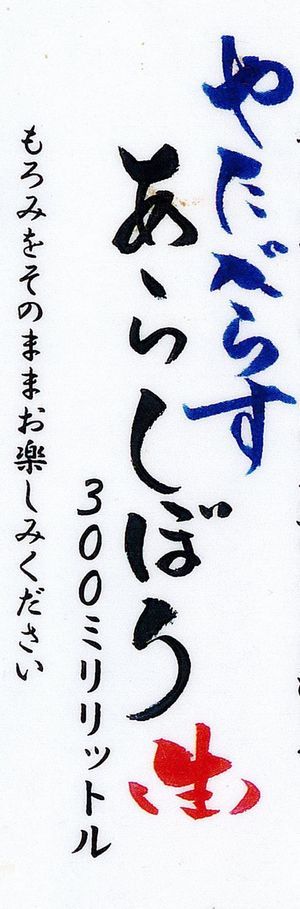 やたがらす
あらしぼり
(生)
300ミリリットル
もろみをそのままお楽しみください